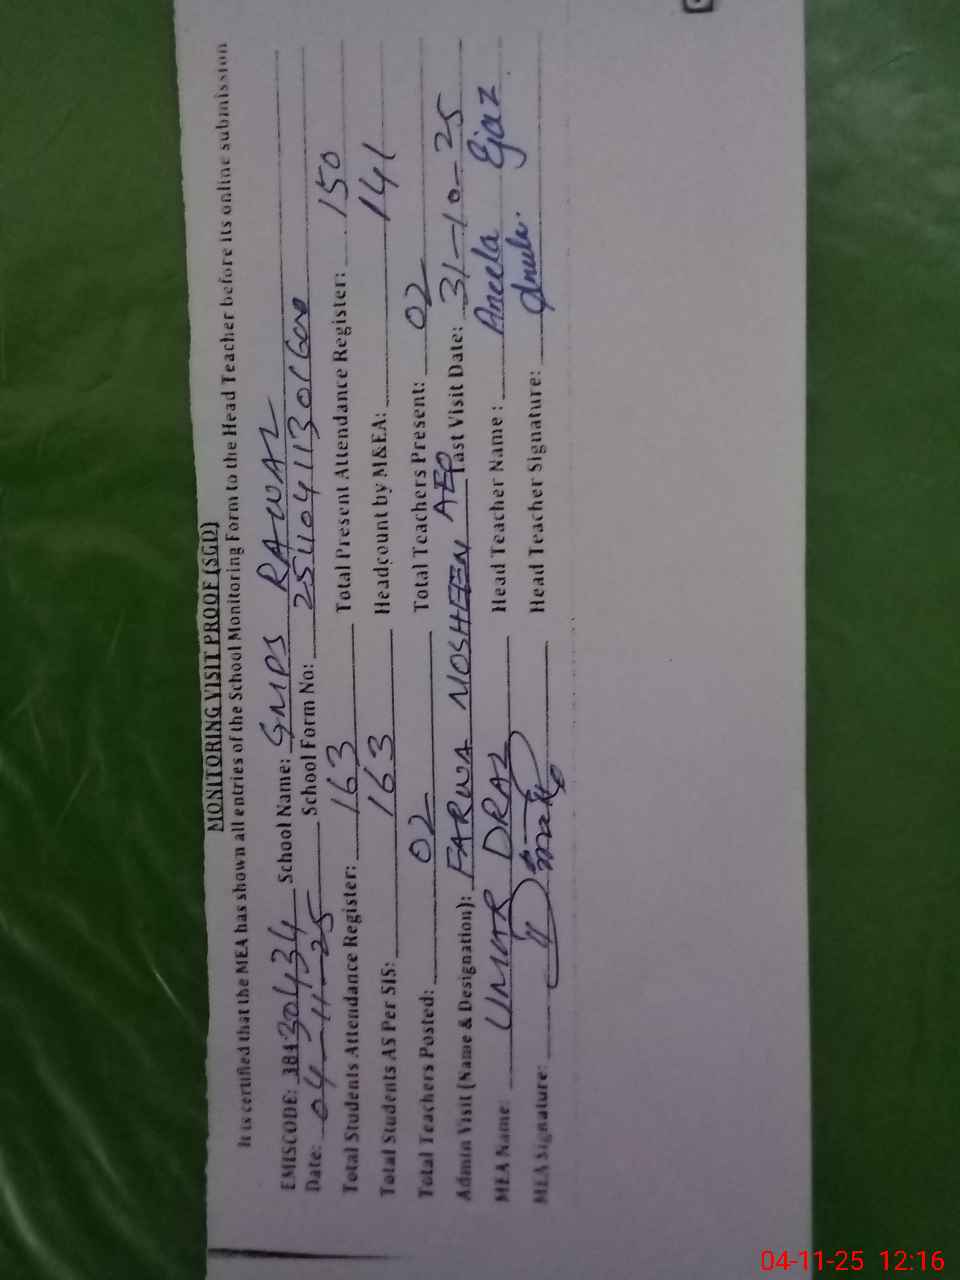 MONITORING VISIT PROOF (SGD)
It is certified that the MEA has shown all entries of the School Monitoring Form to the Head Teacher before its online submission
EMISCODE: 38130434 School Name: GMPS RAWAL
Date: 04-11-25 School Form No:
Total Students Attendance Register: 163 Total Present Attendance Register: 150
Total Students AS Per SIS: 163 Headcount by M&EA: 141
Total Teachers Posted: 02 Total Teachers Present: 02
Admin Visit (Name & Designation): FARWA MOSHEEN AEO Last Visit Date: 31-10-25
MEA Name: UMAR DRAZ Head Teacher Name: Aneela Ejaz
MEA Signature: Head Teacher Signature: Aneela.
04-11-25 12:16